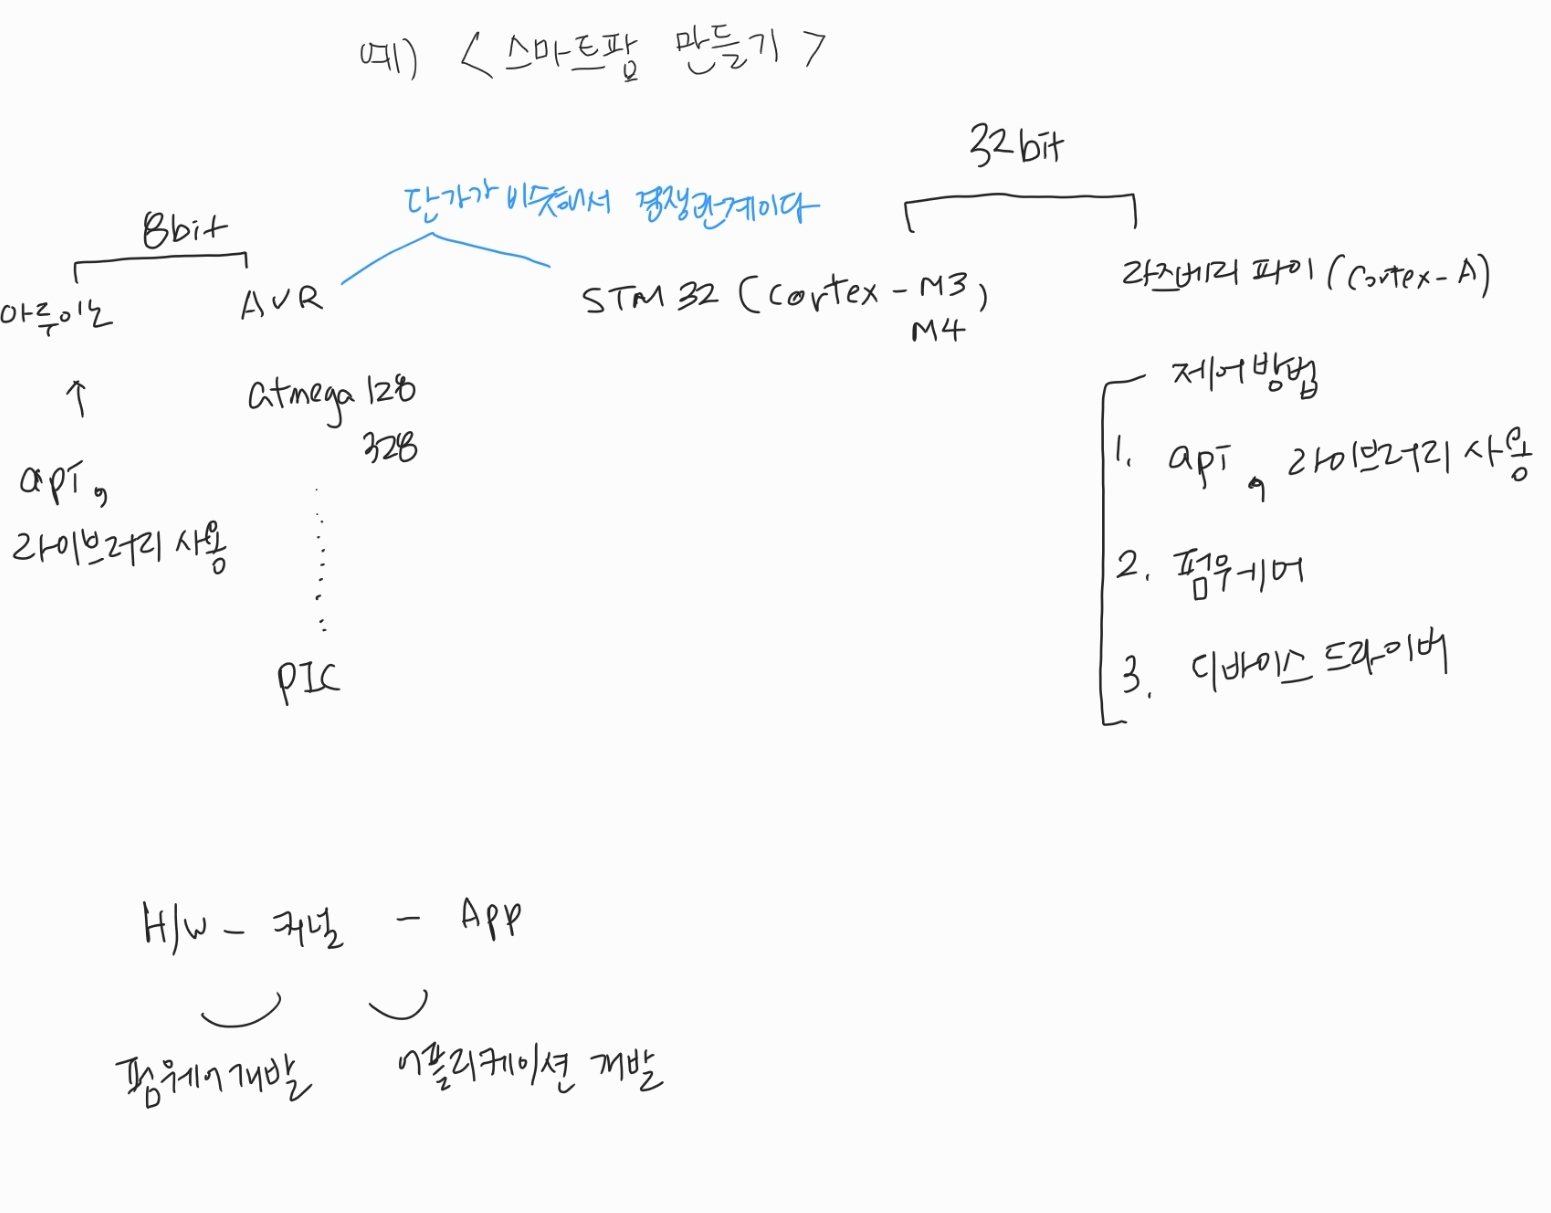 예) < 스마트팜 만들기 >
32bit
단가가 비슷해서 경쟁관계이다
8bit
아두이노
AVR
STM 32 (cortex - M3
M4)
라즈베리 파이 (Cortex - A)
atmega 128
328
PIC
↑
api,
라이브러리 사용
제어방법
1. api, 라이브러리 사용
2. 펌웨어
3. 디바이스 드라이버
H/W - 커널 - App
펌웨어 개발
어플리케이션 개발